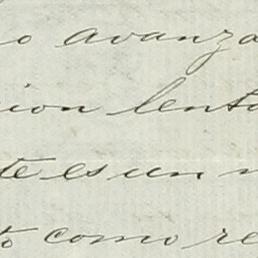 o avanza
ion lento
te es un
to como re